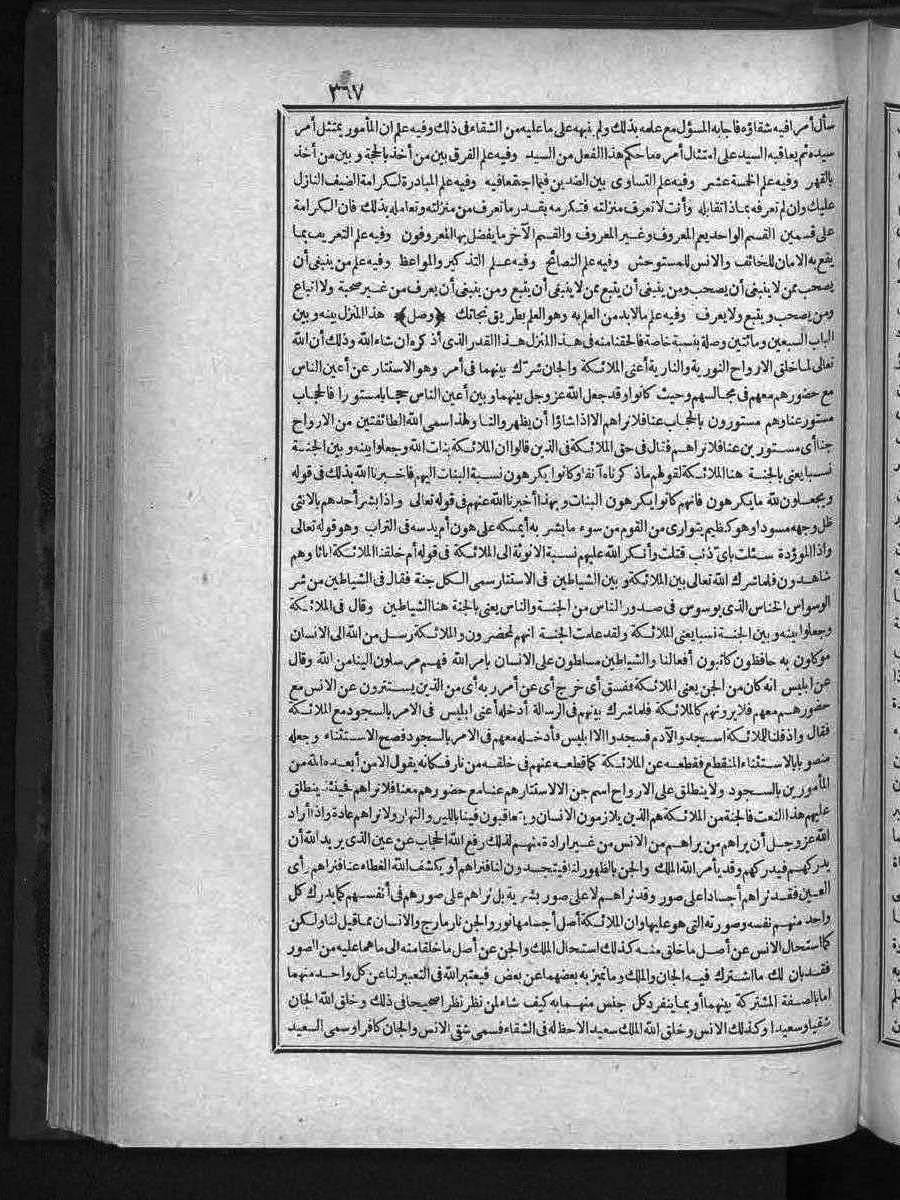 ٣٦٧
سأل أمرا فيه شقاؤه فاجابه المسؤل مع علمه بذلك ولم ينبهه على ما عليه من الشقاء فى ذلك وفيه علم ان المأمور يمتثل أمر
سيده ثم يعاقبه السيد على امتثال أمره ما حكم هذا الفعل من السيد وفيه علم الفرق بين من أخذ بالحجة وبين من أخذ
بالقهر وفيه علم الخسة عشر وفيه علم التساوى بين الضدين فيما اجتمعا فيه وفيه علم المبادرة لكرامة الضيف النازل
عليك وان لم تعرفه بماذا تقابله وأنت لا تعرف منزلته فتكرمه بقدر ما تعرف من منزلته وتعامله بذلك فان الكرامة
على قسمين القسم الواحد يعم المعروف وغير المعروف والقسم الآخر ما يفضل بها المعروفون وفيه علم التعريف بما
يقع به الامان للخائف والانس للمستوحش وفيه علم النصائح وفيه علم التذكير والمواعظ وفيه علم من ينبغى أن
يصحب ممن لا ينبغى أن يصحب ومن ينبغى أن يتبع ممن لا ينبغى أن يتبع ومن ينبغى أن يعرف من غير صحبة ولا اتباع
ومن يصحب ويتبع ولا يعرف وفيه علم ما لابد من العلم به وهو العلم بطريق نجاتك ﴿وصل﴾ هذا المنزل بينه وبين
الباب السبعين ومائتين وصلة بنسبة خاصة فالحقنا منه فى هذا المنزل هذا القدر الذى أذكره ان شاء الله وذلك أن الله
تعالى لما خلق الارواح النورية والنارية أعنى الملائكة والجان شرك بينهما فى أمر وهو الاستتار عن أعين الناس
مع حضورهم معهم فى مجالسهم وحيث كانوا وقد جعل الله عز وجل بينهما وبين أعين الناس حجابا مستورا فالحجاب
مستور عنا وهم مستورون بالحجاب عنا فلا نراهم الا اذا شاؤا أن يظهروا لنا ولهذا سمى الله الطائفتين من الارواح
جنا أى مستورين عنا فلا نراهم فقال فى حق الملائكة فى الذين قالوا ان الملائكة بنات الله وجعلوا بينه وبين الجنة
نسبا يعنى بالجنة هنا الملائكة لقولهم ما ذكرناه آنفا وكانوا يكرهون نسبة البنات اليهم فاخبرنا الله بذلك فى قوله
ويجعلون لله ما يكرهون فانهم كانوا يكرهون البنات وبهذا أخبرنا الله عنهم فى قوله تعالى واذا بشر أحدهم بالانثى
ظل وجهه مسودا وهو كظيم يتوارى من القوم من سوء ما بشر به أيمسكه على هون أم يدسه فى التراب وهو قوله تعالى
واذا الموؤدة سئلت باى ذنب قتلت وأنكر الله عليهم نسبة الانوثة الى الملائكة فى قوله أم خلقنا الملائكة اناثا وهم
شاهدون فلما شرك الله تعالى بين الملائكة وبين الشياطين فى الاستتار سمى الكل جنة فقال فى الشياطين من شر
الوسواس الخناس الذى يوسوس فى صدور الناس من الجنة والناس يعنى بالجنة هنا الشياطين وقال فى الملائكة
وجعلوا بينه وبين الجنة نسبا يعنى الملائكة ولقد علمت الجنة انهم لمحضرون والملائكة رسل من الله الى الانسان
موكلون به حافظون كاتبون أفعالنا والشياطين مسلطون على الانسان بامر الله فهم مرسلون الينا من الله وقال
عن ابليس انه كان من الجن يعنى الملائكة ففسق أى خرج أى عن أمر ربه أى من الذين يستترون عن الانس مع
حضورهم معهم فلا يرونهم كالملائكة فلما شرك بينهم فى الرسالة أدخله أعنى ابليس فى الامر بالسجود مع الملائكة
فقال واذ قلنا للملائكة اسجدوا لآدم فسجدوا الا ابليس فأدخله معهم فى الامر بالسجود فصح الاستثناء وجعله
منصوبا بالاستثناء المنقطع فقطعه عن الملائكة كما قطعه عنهم فى خلقه من نار فكانه يقول الا من أبعده الله من
المأمورين بالسجود ولا ينطلق على الارواح اسم جن الا لاستتارهم عنا مع حضورهم معنا فلا نراهم فحينئذ ينطلق
عليهم هذا النعت فالجنة من الملائكة هم الذين يلازمون الانسان ويتعاقبون فينا بالليل والنهار ولا نراهم عادة واذا أراد
الله عز وجل أن يراهم من يراهم من الانس من غير ارادة منهم لذلك رفع الله الحجاب عن عين الذى يريد الله أن
يدركهم فيدركهم وقد يأمر الله الملك والجن بالظهور لنا فيتجسدون لنا فنراهم أو يكشف الله الغطاء عنا فنراهم رأى
العين فقد نراهم أجسادا على صور وقد نراهم لا على صور بشرية بل نراهم على صورهم فى أنفسهم كما يدرك كل
واحد منهم نفسه وصورته التى هو عليها وان الملائكة أصل أجسامها نور والجن نار مارج والانسان مما قيل لنا ولكن
كما استحال الانس عن أصل ما خلق منه كذلك استحال الملك والجن عن أصل ما خلقا منه الى ما هما عليه من الصور
فقد بان لك ما اشترك فيه الجان والملك وما تميز به بعضهما عن بعض فيعتبر الله فى التعبير لنا عن كل واحد منهما
اما بالصفة المشتركة بينهما أو بما ينفرد كل جنس منهما به كيف شاء لمن نظر نظرا صحيحا فى ذلك وخلق الله الجان
شقيا وسعيدا وكذلك الانس وخلق الله الملك سعيدا لا حظ له فى الشقاء فسمى شقى الانس والجان كافرا وسمى السعيد